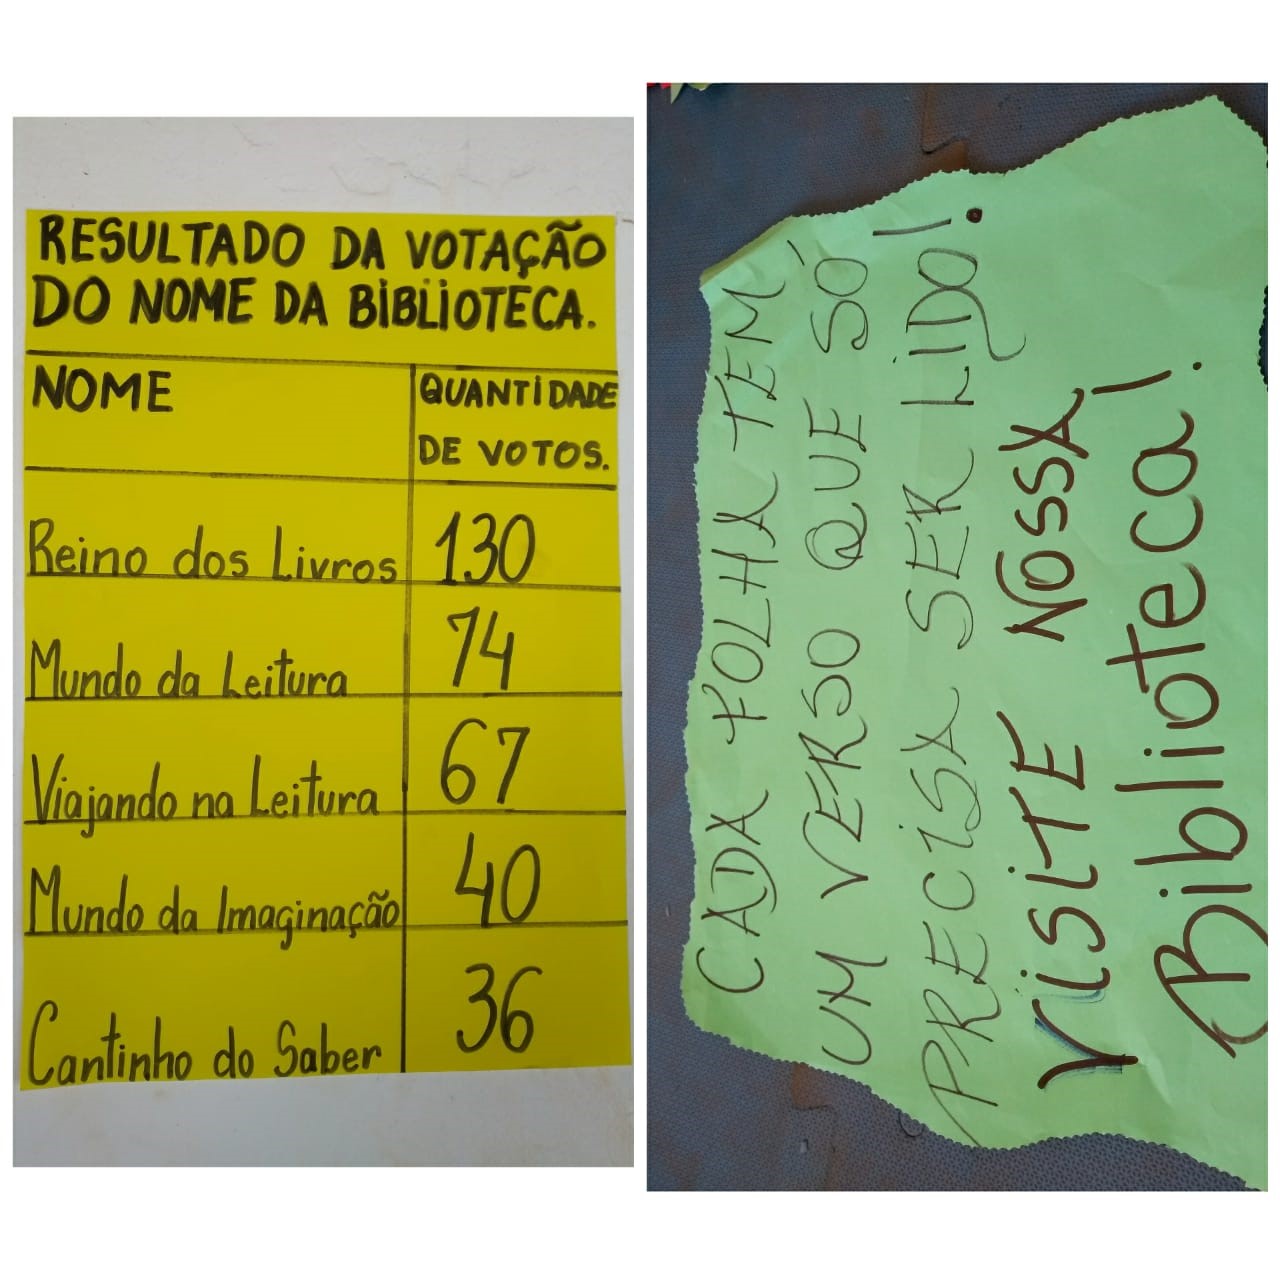 RESULTADO DA VOTAÇÃO
DO NOME DA BIBLIOTECA.
NOME
QUANTIDADE
DE VOTOS.
Reino dos Livros 130
Mundo da Leitura 74
Viajando na Leitura 67
Mundo da Imaginação 40
Cantinho do Saber 36
CADA FOLHA TEM
UM VERSO QUE SÓ
PRECISA SER LIDO!
VISITE NOSSA
Biblioteca!